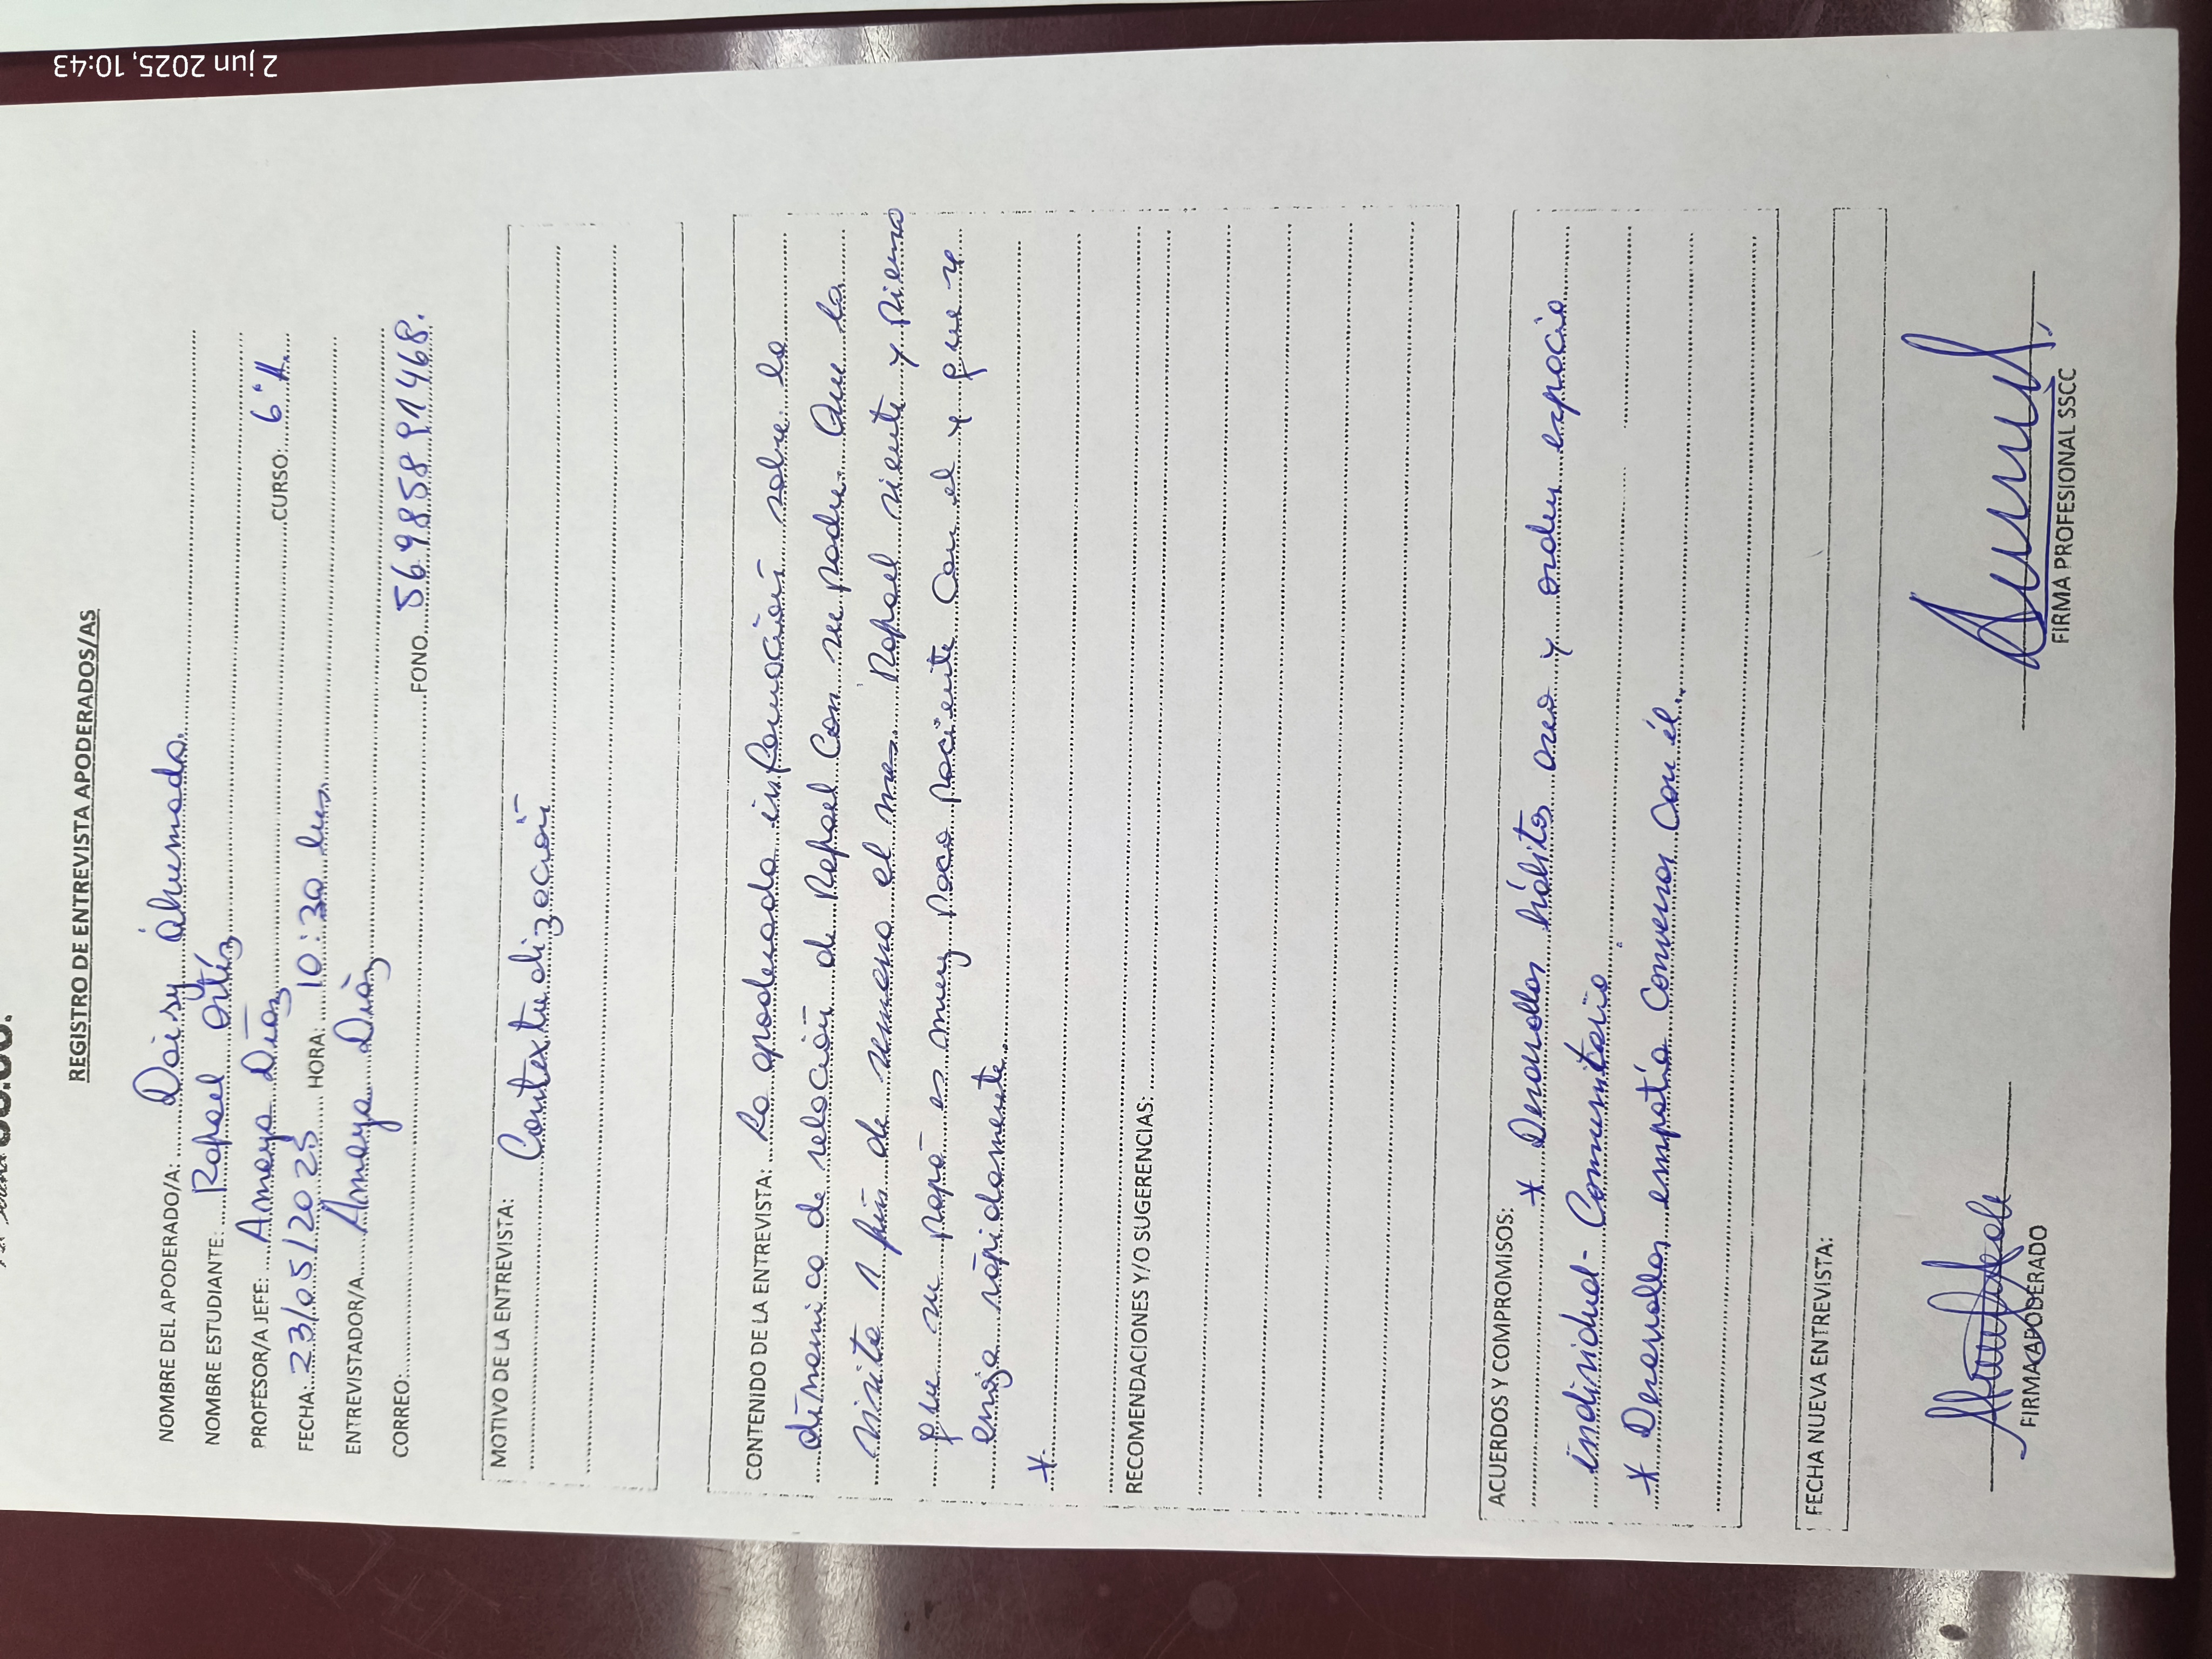 SS.CC.
REGISTRO DE ENTREVISTA APODERADOS/AS
NOMBRE DEL APODERADO/A: Daisy Ahumada.
NOMBRE ESTUDIANTE: Rafael Ortíz
PROFESOR/A JEFE: Amaya Díaz CURSO: 6°A.
FECHA: 23/05/2025 HORA: 10:30 hrs
ENTREVISTADOR/A: Amaya Díaz
CORREO: FONO 56 9 858 91468.
MOTIVO DE LA ENTREVISTA:
Contextualización
CONTENIDO DE LA ENTREVISTA: La apoderada información sobre la
dinamica de relación de Rafael Con su padre. Que lo
visita 1 fin de semana al mes. Rafael siente y piensa
que su papá es muy poco paciente Con el y que se
enoja rápidamente.
*
RECOMENDACIONES Y/O SUGERENCIAS:
ACUERDOS Y COMPROMISOS: * Desarrollar hábitos aseo y orden espacio
individual - Comunitario
* Desarrollar empatía Conversar Con él.
FECHA NUEVA ENTREVISTA:
FIRMA APODERADO FIRMA PROFESIONAL SSCC
2 jun 2025, 10:43